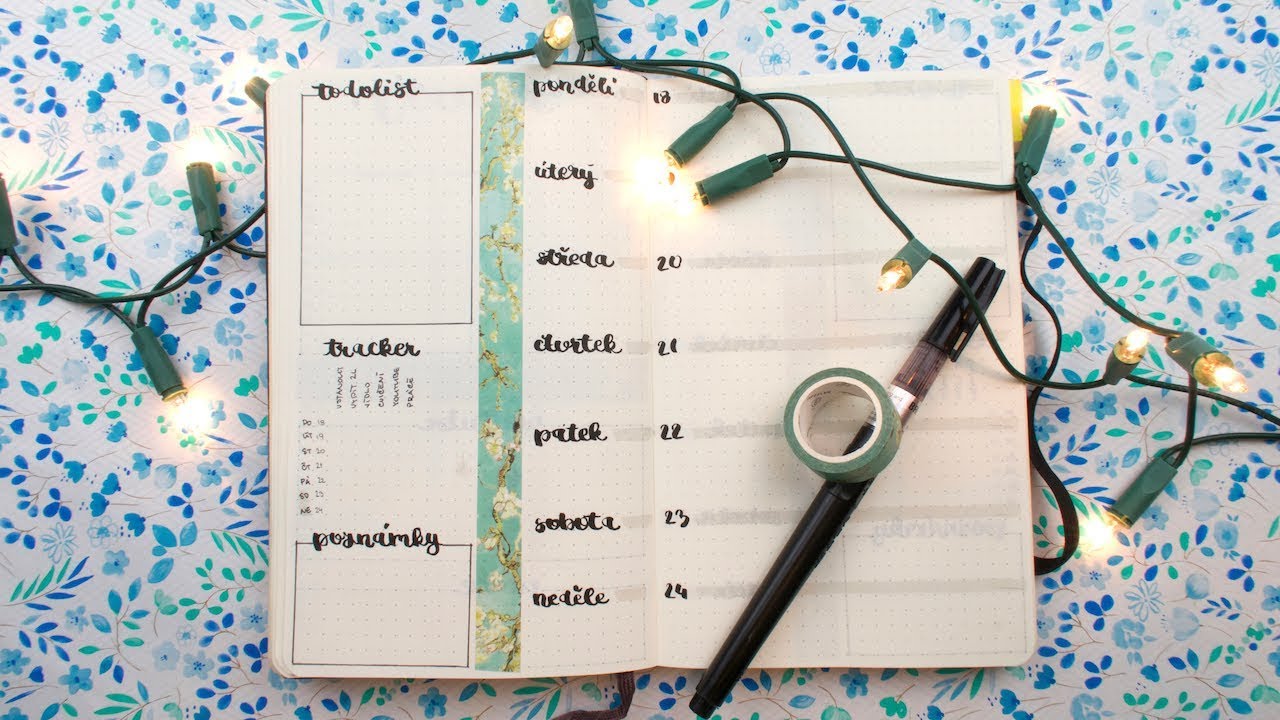 todolist
tracker
VSTÁVÁNÍ
VYPÍT 2L
JÍDLO
CVIČENÍ
YOUTUBE
PRÁCE
PO 18
ÚT 19
ST 20
ČT 21
PÁ 22
SO 23
NE 24
poznámky
pondělí 18
úterý
středa 20
čtvrtek 21
pátek 22
sobota 23
neděle 24